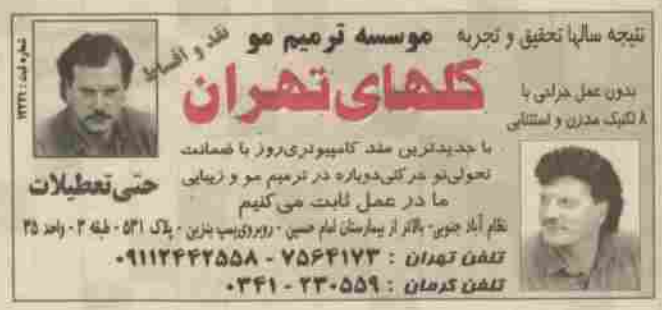 نتیجه سالها تحقیق و تجربه موسسه ترمیم مو نقد و اقساط
شماره ثبت : ۱۲۲۲۱
گلهای تهران
بدون عمل جراحی با
۸ تکنیک مدرن و استثنایی
با جدیدترین متد کامپیوتری روز با ضمانت
تحولی نو حرکتی دوباره در ترمیم مو و زیبایی
ما در عمل ثابت می کنیم
حتی تعطیلات
نظام آباد جنوبی - بالاتر از بیمارستان امام حسین - روبروی پمپ بنزین - پلاک ۵۳۱ - طبقه ۳ - واحد ۳۵
تلفن تهران : ۷۵۶۴۱۷۳ - ۰۹۱۱۲۴۴۲۵۵۸
تلفن کرمان : ۲۳۰۵۵۹ - ۰۳۴۱